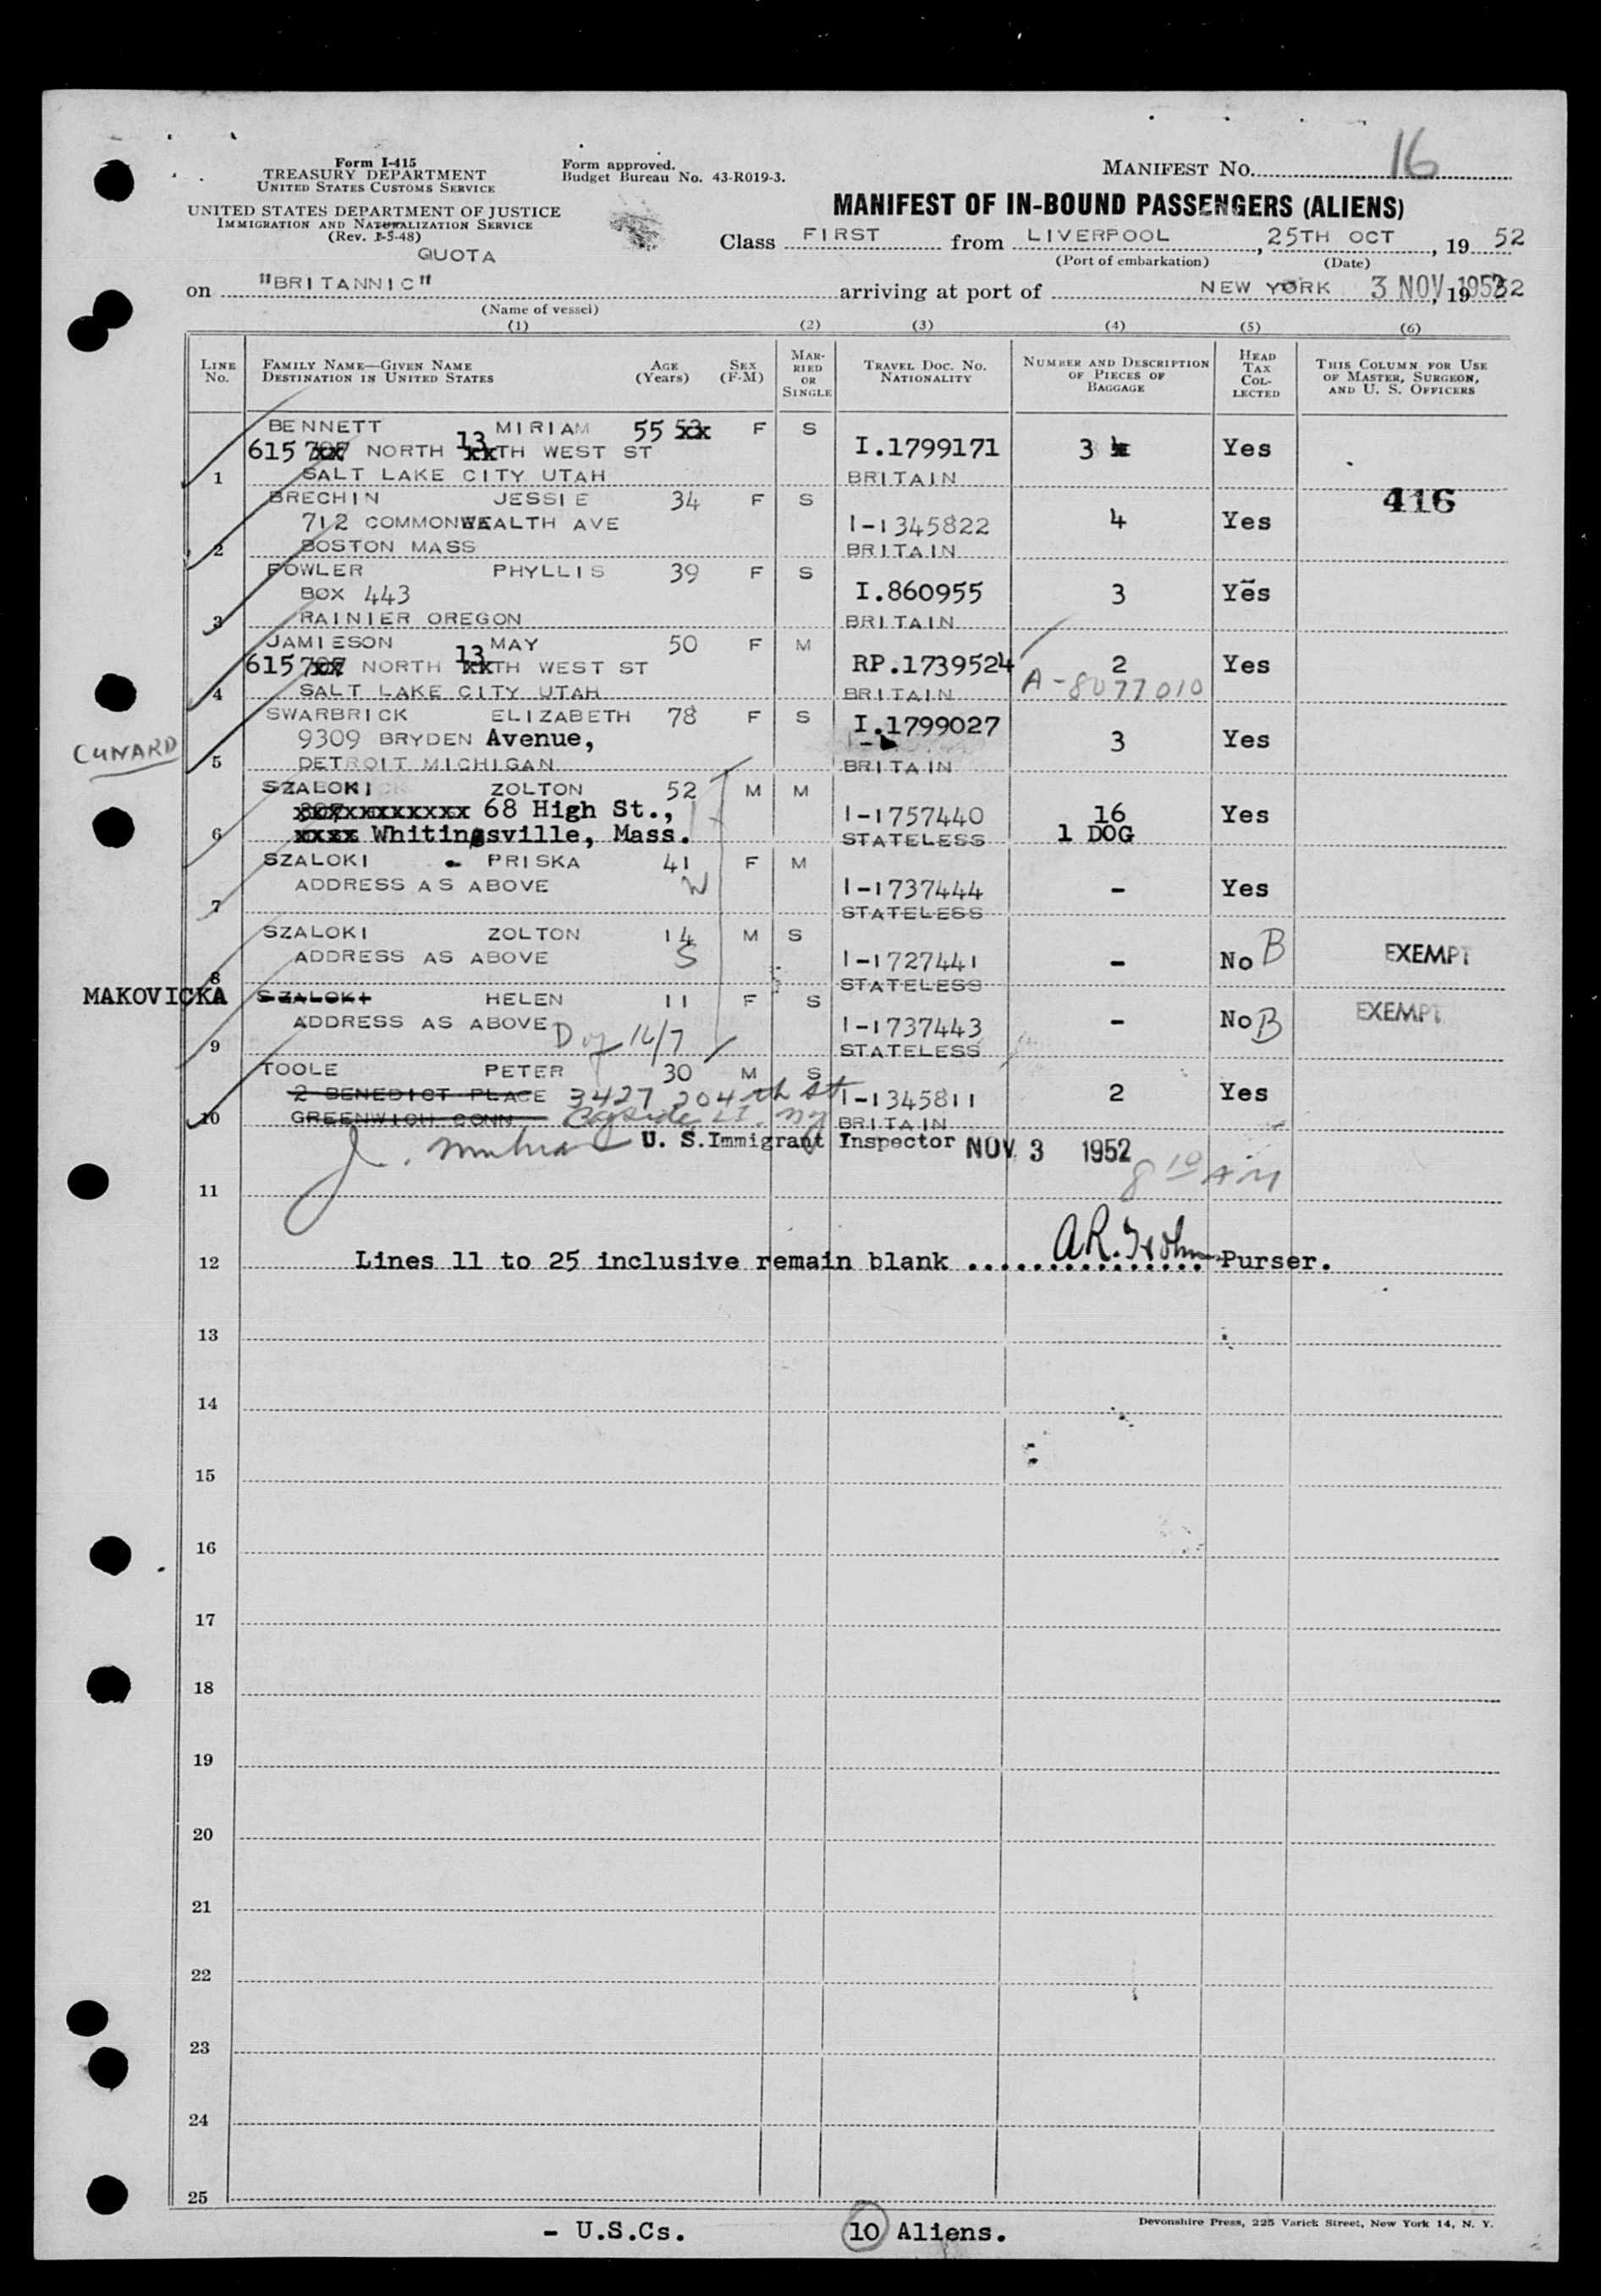 Form I-415
TREASURY DEPARTMENT
UNITED STATES CUSTOMS SERVICE
UNITED STATES DEPARTMENT OF JUSTICE
IMMIGRATION AND NATURALIZATION SERVICE
(Rev. 1-5-48)
QUOTA
Form approved.
Budget Bureau No. 43-R019-3.
MANIFEST NO. 16
MANIFEST OF IN-BOUND PASSENGERS (ALIENS)
Class FIRST from LIVERPOOL, 25TH OCT, 19 52
(Port of embarkation) (Date)
on "BRITANNIC" arriving at port of NEW YORK 3 NOV, 1952
(Name of vessel)
(1) (2) (3) (4) (5) (6)
LINE NO. FAMILY NAME—GIVEN NAME DESTINATION IN UNITED STATES AGE (Years) SEX (F-M) MARRIED OR SINGLE TRAVEL DOC. NO. NATIONALITY NUMBER AND DESCRIPTION OF PIECES OF BAGGAGE HEAD TAX COLLECTED THIS COLUMN FOR USE OF MASTER, SURGEON, AND U. S. OFFICERS
BENNETT MIRIAM 55 F S
615 NORTH 13 TH WEST ST I.1799171 3 Yes
1 SALT LAKE CITY UTAH BRITAIN
BRECHIN JESSIE 34 F S 416
712 COMMONWEALTH AVE I-1345822 4 Yes
2 BOSTON MASS BRITAIN
FOWLER PHYLLIS 39 F S
BOX 443 I.860955 3 Yes
3 RAINIER OREGON BRITAIN
JAMIESON MAY 50 F M
615 NORTH 13 TH WEST ST RP.1739524 2 Yes
4 SALT LAKE CITY UTAH BRITAIN A-8077010
SWARBRICK ELIZABETH 78 F S I.1799027
CUNARD 9309 BRYDEN Avenue, 3 Yes
5 DETROIT MICHIGAN BRITAIN
SZALOKI ZOLTON 52 M M
xxxxxxxxxxx 68 High St., I-1757440 16 Yes
6 xxxx Whitingsville, Mass. STATELESS 1 DOG
SZALOKI - PRISKA 41 F M
ADDRESS AS ABOVE W I-1737444 - Yes
7 STATELESS
SZALOKI ZOLTON 14 M S
ADDRESS AS ABOVE S I-1727441 - No B EXEMPT
8 STATELESS
MAKOVICKA SZALOKI HELEN 11 F S
ADDRESS AS ABOVE I-1737443 - No B EXEMPT
9 STATELESS
TOOLE PETER 30 M S
2 BENEDICT PLACE 3427 204th St I-1345811 2 Yes
10 GREENWICH CONN Bayside L.I. NY BRITAIN
U. S.Immigrant Inspector NOV 3 1952
8 10 AM
11
12 Lines 11 to 25 inclusive remain blank ............... Purser.
13
14
15
16
17
18
19
20
21
22
23
24
25
- U.S.Cs. 10 Aliens.
Devonshire Press, 225 Varick Street, New York 14, N. Y.